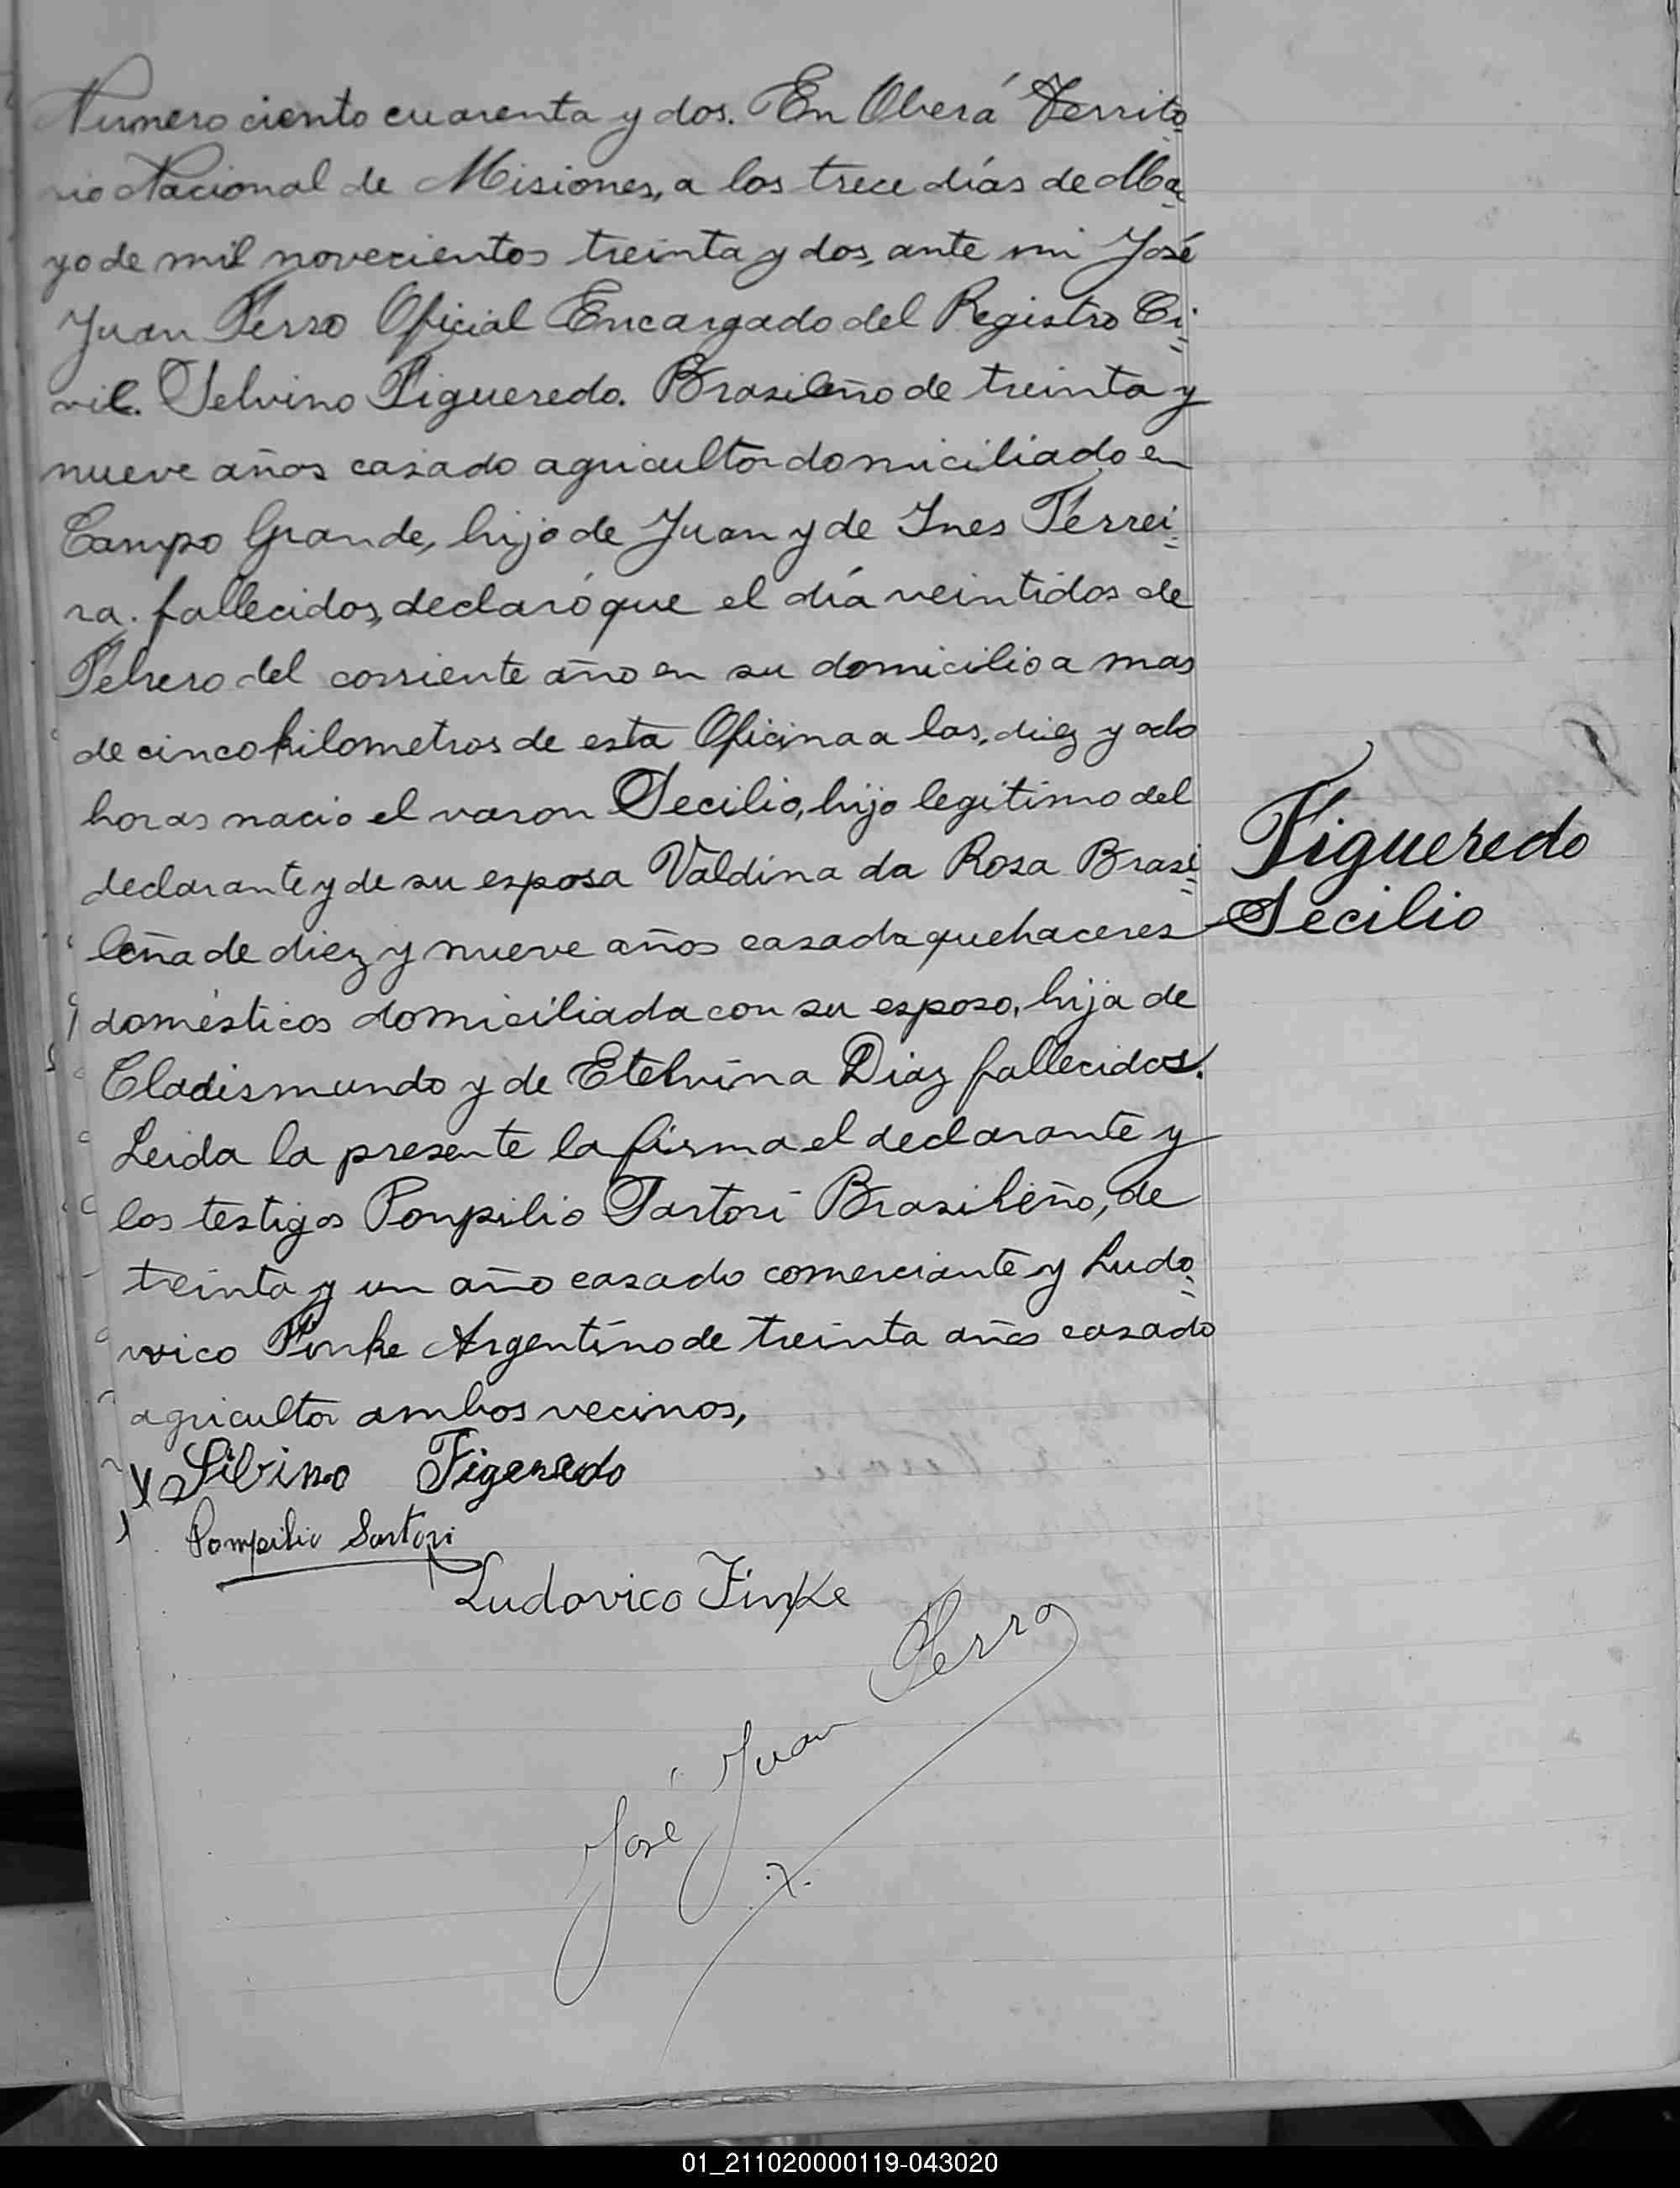 Numero ciento cuarenta y dos. En Oberá Territo
rio Nacional de Misiones, a los trece días de Ma
yo de mil novecientos treinta y dos, ante mi José
Juan Ferro Oficial Encargado del Registro Ci
vil. Selvino Figueredo. Brasileño de treinta y
nueve años casado agricultor domiciliado en
Campo Grande, hijo de Juan y de Ines Ferrei
ra. fallecidos, declaró que el día veintidos de
Febrero del corriente año en su domicilio a mas
de cinco kilometros de esta Oficina a las, diez y ocho
horas nacio el varon Secilio, hijo legitimo del
declarante y de su esposa Valdina da Rosa Brasi
leña de diez y nueve años casada quehaceres
domésticos domiciliada con su esposo, hija de
Cladismundo y de Etelvina Diaz fallecidos.
Leida la presente la firma el declarante y
los testigos Pompilio Sartori Brasileño, de
treinta y un año casado comerciante y Ludo
vico Finke Argentino de treinta años casado
agricultor ambos vecinos,
Figueredo
Secilio
Silvino Figeredo
Pompilio Sartori
Ludovico Finke
José Juan Ferro
01_211020000119-043020